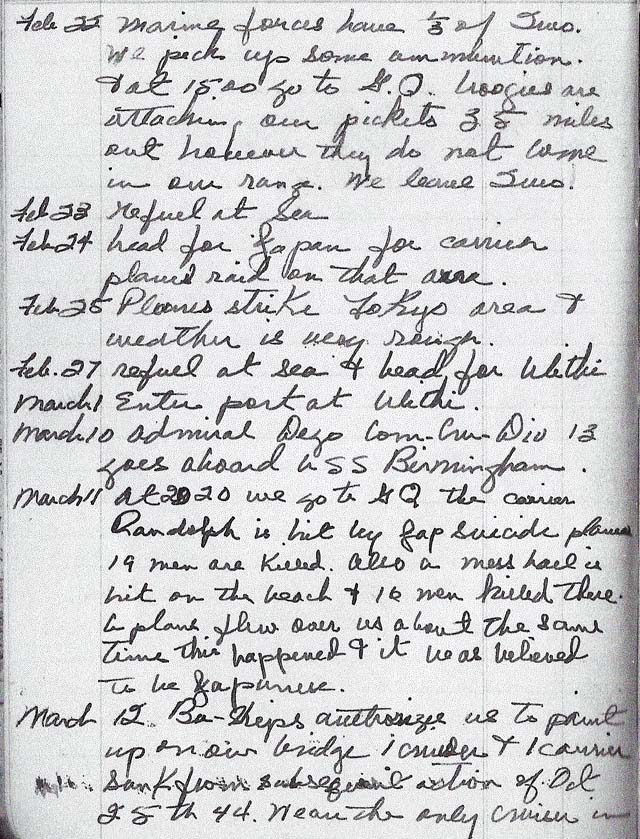 Feb 22 Marine forces have 1/3 of Iwo.
We pick up some ammunition.
& at 1500 go to G.Q. boogies are
attaching our pickets 35 miles
out however they do not come
in our range. We leave Iwo.
Feb 23 refuel at sea
Feb 24 head for Japan for carrier
planes raid on that area.
Feb 25 Planes strike Tokyo area &
weather is very rough.
Feb. 27 refuel at sea & head for Ulithi
March 1 Enter port at Ulithi.
March 10 admiral Deyo Com-Cru-Div 13
goes aboard USS Birmingham.
March 11 at 2020 we go to GQ the carrier
Randolph is hit by Jap suicide plane
19 men are killed. Also a mess hall is
hit on the beach & 16 men killed there.
A plane flew over us about the same
time this happened & it was believed
to be Japanese.
March 12. Bu-Ships authorize us to paint
up on our bridge 1 cruiser & 1 carrier
sank from subsequent action of Oct
25th 44. We are the only cruiser in